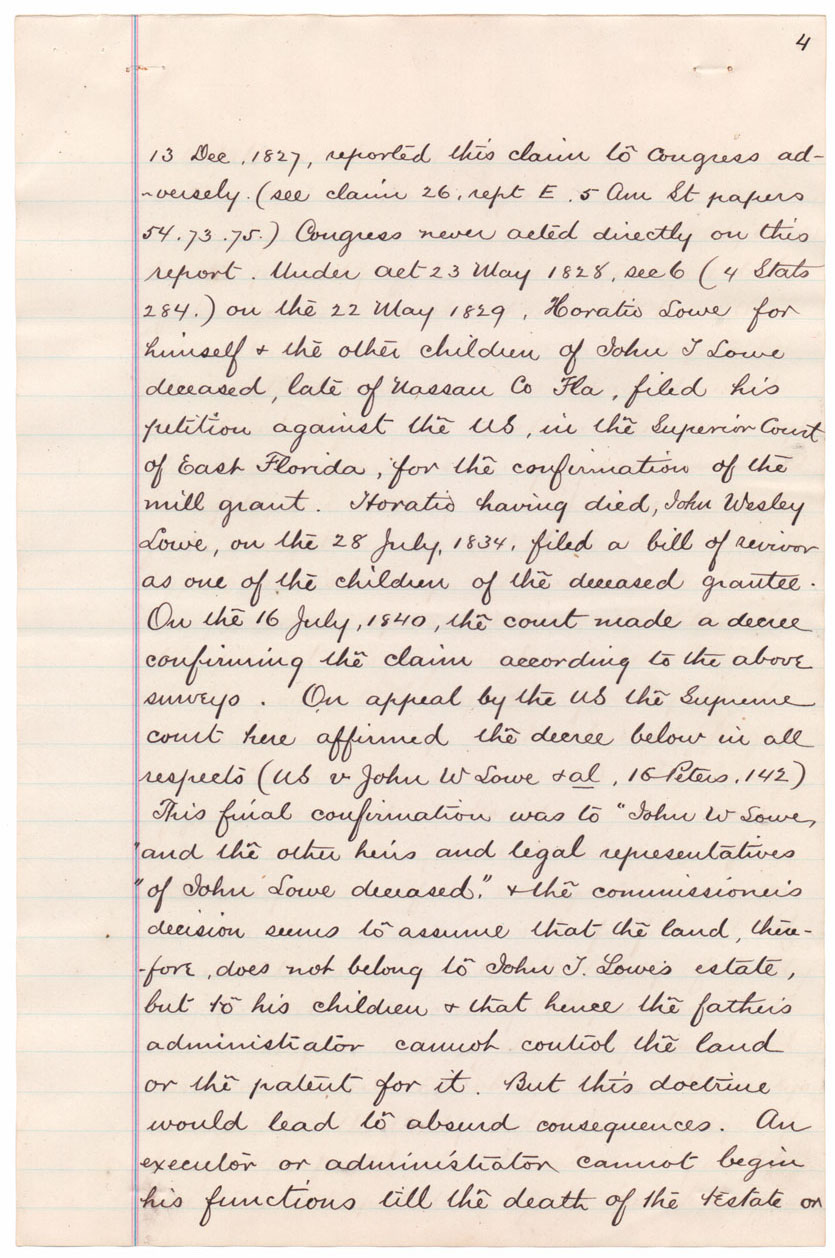 4
13 Dec, 1827, reported this claim to Congress ad-
-versely. (see claim 26, rept E. 5 Am St papers
54.73.75.) Congress never acted directly on this
report. Under act 23 May 1828, sec 6 (4 Stats
284.) on the 22 May 1829, Horatio Lowe for
himself & the other children of John T Lowe
deceased, late of Nassau Co Fla, filed his
petition against the US, in the Superior Court
of East Florida, for the confirmation of the
mill grant. Horatio having died, John Wesley
Lowe, on the 28 July, 1834, filed a bill of revivor
as one of the children of the deceased grantee.
On the 16 July, 1840, the court made a decree
confirming the claim according to the above
surveys. On appeal by the US the Supreme
court here affirmed the decree below in all
respects (US v John W Lowe & al, 16 Peters, 142)
This final confirmation was to "John W Lowe,
"and the other heirs and legal representatives
"of John Lowe deceased." & the commissioner's
decision seems to assume that the land, there-
-fore, does not belong to John T. Lowe's estate,
but to his children & that hence the father's
administrator cannot control the land
or the patent for it. But this doctrine
would lead to absurd consequences. An
executor or administrator cannot begin
his functions till the death of the testate or